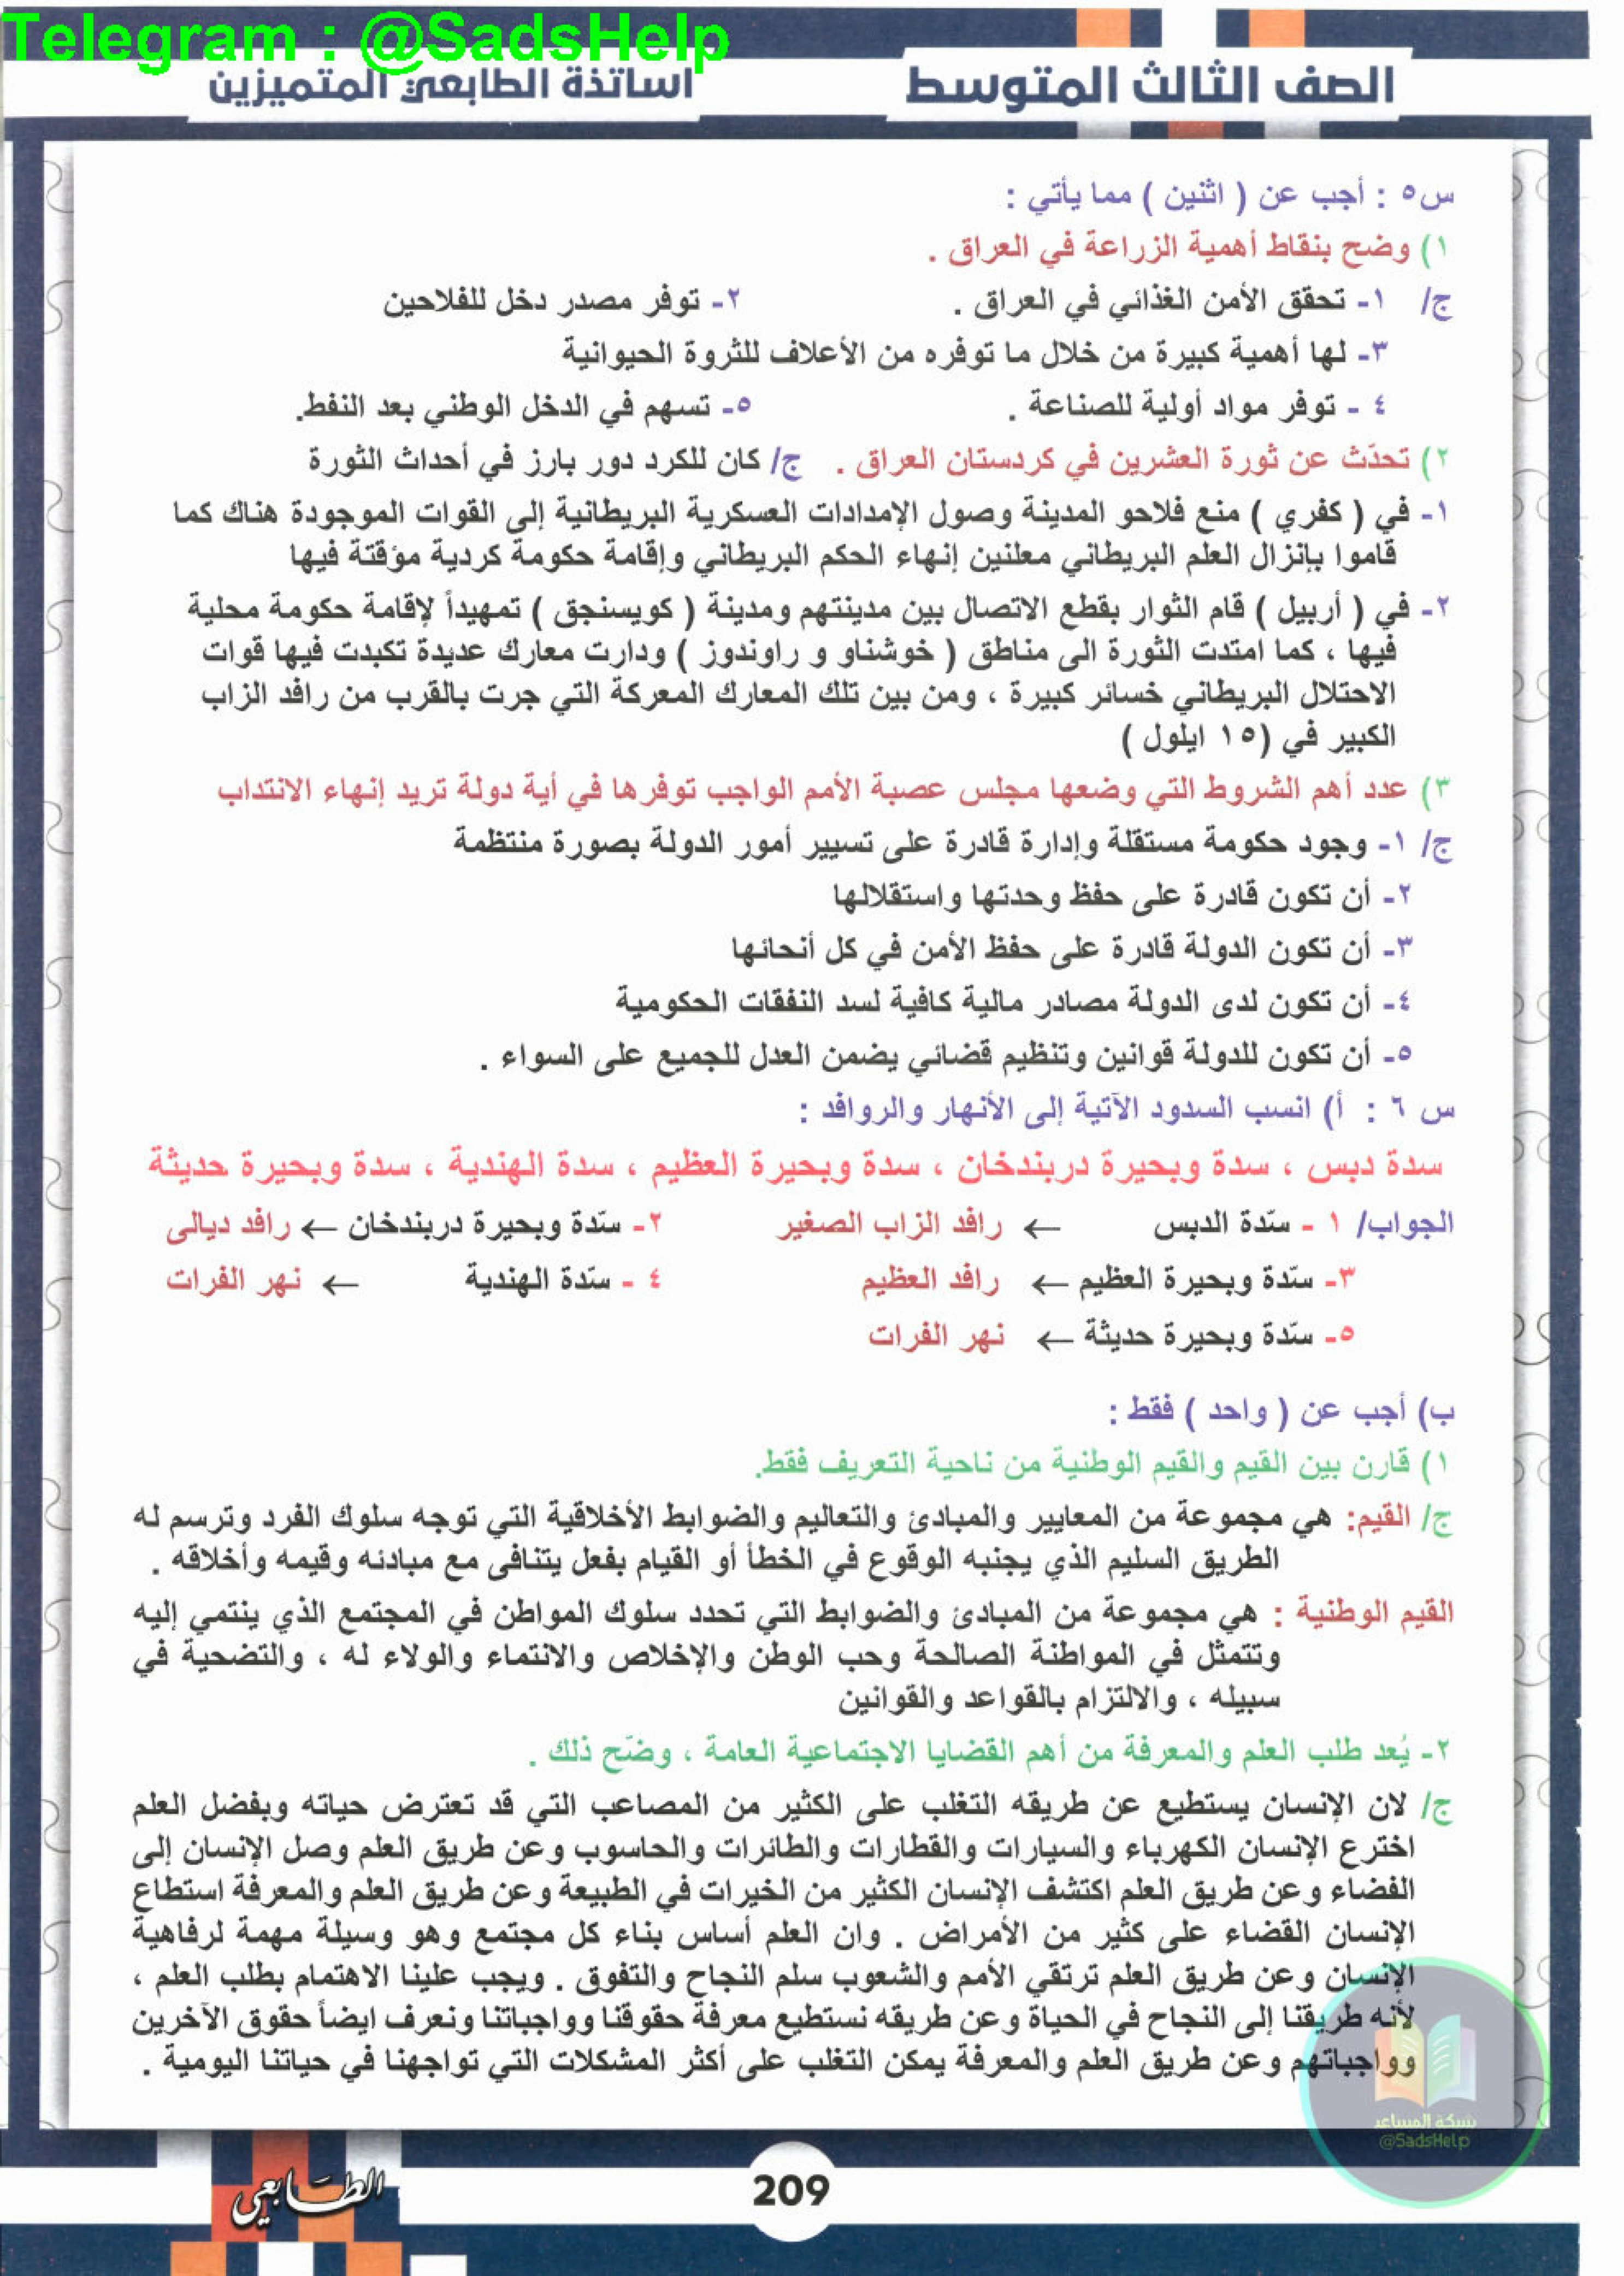 Telegram : @SadsHelp
الصف الثالث المتوسط
اساتذة الطابعي المتميزين
س٥ : أجب عن ( اثنين ) مما يأتي :
١) وضح بنقاط أهمية الزراعة في العراق .
ج/ ١- تحقق الأمن الغذائي في العراق . ٢- توفر مصدر دخل للفلاحين
٣- لها أهمية كبيرة من خلال ما توفره من الأعلاف للثروة الحيوانية
٤ - توفر مواد أولية للصناعة . ٥- تسهم في الدخل الوطني بعد النفط.
٢) تحدّث عن ثورة العشرين في كردستان العراق . ج/ كان للكرد دور بارز في أحداث الثورة
١- في ( كفري ) منع فلاحو المدينة وصول الإمدادات العسكرية البريطانية إلى القوات الموجودة هناك كما
قاموا بإنزال العلم البريطاني معلنين إنهاء الحكم البريطاني وإقامة حكومة كردية مؤقتة فيها
٢- في ( أربيل ) قام الثوار بقطع الاتصال بين مدينتهم ومدينة ( كويسنجق ) تمهيداً لإقامة حكومة محلية
فيها ، كما امتدت الثورة الى مناطق ( خوشناو و راوندوز ) ودارت معارك عديدة تكبدت فيها قوات
الاحتلال البريطاني خسائر كبيرة ، ومن بين تلك المعارك المعركة التي جرت بالقرب من رافد الزاب
الكبير في (١٥ ايلول )
٣) عدد أهم الشروط التي وضعها مجلس عصبة الأمم الواجب توفرها في أية دولة تريد إنهاء الانتداب
ج/ ١- وجود حكومة مستقلة وإدارة قادرة على تسيير أمور الدولة بصورة منتظمة
٢- أن تكون قادرة على حفظ وحدتها واستقلالها
٣- أن تكون الدولة قادرة على حفظ الأمن في كل أنحائها
٤- أن تكون لدى الدولة مصادر مالية كافية لسد النفقات الحكومية
٥- أن تكون للدولة قوانين وتنظيم قضائي يضمن العدل للجميع على السواء .
س ٦ : أ) انسب السدود الآتية إلى الأنهار والروافد :
سدة دبس ، سدة وبحيرة دربندخان ، سدة وبحيرة العظيم ، سدة الهندية ، سدة وبحيرة حديثة
الجواب/ ١ - سّدة الدبس ← رافد الزاب الصغير ٢- سّدة وبحيرة دربندخان ← رافد ديالى
٣- سّدة وبحيرة العظيم ← رافد العظيم ٤ - سّدة الهندية ← نهر الفرات
٥- سّدة وبحيرة حديثة ← نهر الفرات
ب) أجب عن ( واحد ) فقط :
١) قارن بين القيم والقيم الوطنية من ناحية التعريف فقط.
ج/ القيم: هي مجموعة من المعايير والمبادئ والتعاليم والضوابط الأخلاقية التي توجه سلوك الفرد وترسم له
الطريق السليم الذي يجنبه الوقوع في الخطأ أو القيام بفعل يتنافى مع مبادئه وقيمه وأخلاقه .
القيم الوطنية : هي مجموعة من المبادئ والضوابط التي تحدد سلوك المواطن في المجتمع الذي ينتمي إليه
وتتمثل في المواطنة الصالحة وحب الوطن والإخلاص والانتماء والولاء له ، والتضحية في
سبيله ، والالتزام بالقواعد والقوانين
٢- يُعد طلب العلم والمعرفة من أهم القضايا الاجتماعية العامة ، وضّح ذلك .
ج/ لان الإنسان يستطيع عن طريقه التغلب على الكثير من المصاعب التي قد تعترض حياته وبفضل العلم
اخترع الإنسان الكهرباء والسيارات والقطارات والطائرات والحاسوب وعن طريق العلم وصل الإنسان إلى
الفضاء وعن طريق العلم اكتشف الإنسان الكثير من الخيرات في الطبيعة وعن طريق العلم والمعرفة استطاع
الإنسان القضاء على كثير من الأمراض . وان العلم أساس بناء كل مجتمع وهو وسيلة مهمة لرفاهية
الإنسان وعن طريق العلم ترتقي الأمم والشعوب سلم النجاح والتفوق . ويجب علينا الاهتمام بطلب العلم ،
لأنه طريقنا إلى النجاح في الحياة وعن طريقه نستطيع معرفة حقوقنا وواجباتنا ونعرف ايضاً حقوق الآخرين
وواجباتهم وعن طريق العلم والمعرفة يمكن التغلب على أكثر المشكلات التي تواجهنا في حياتنا اليومية .
شبكة المساعد
@SadsHelp
الطابعي
209